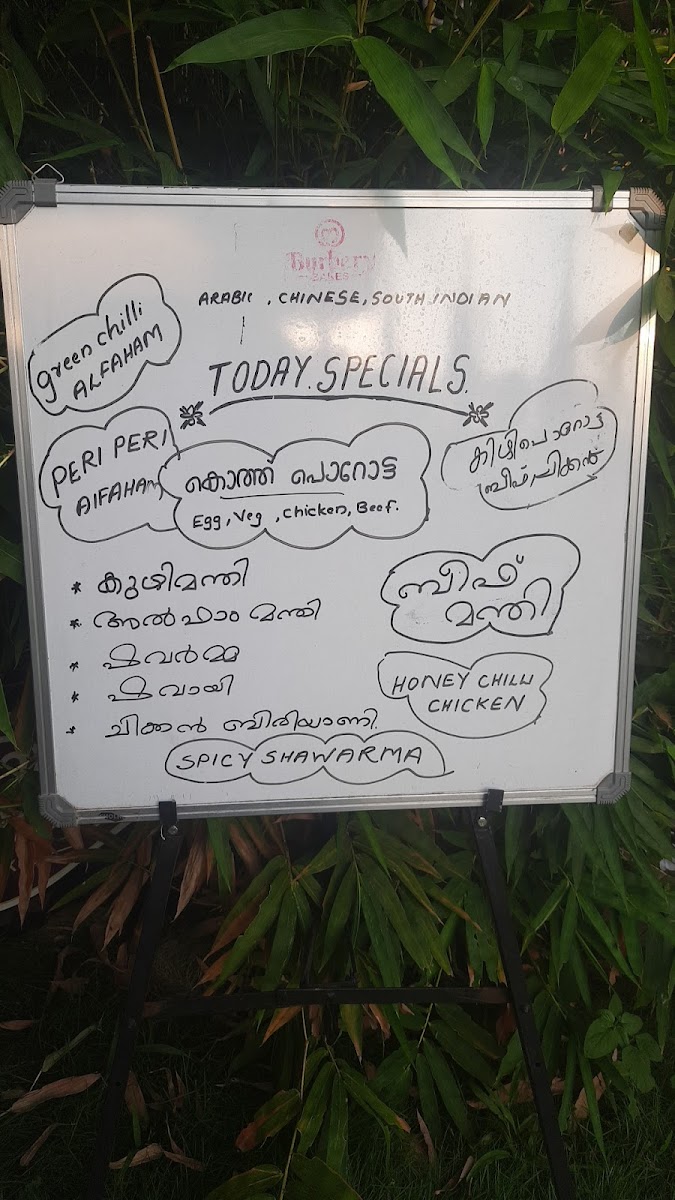 Burbery
BAKES
ARABIC , CHINESE, SOUTH INDIAN
green chilli
ALFAHAM
TODAY. SPECIALS.
PERI PERI
AlFAHAM
കൊത്ത് പൊറോട്ട
Egg, Veg , Chicken, Beef.
കിഴിപൊറോട്ട
ബീഫ്/ചിക്കൻ
* കുഴിമന്തി
* അൽഫാം മന്തി
* ഷവർമ്മ
* ഷവായി
* ചിക്കൻ ബിരിയാണി.
ബീഫ്
മന്തി
HONEY CHILLI
CHICKEN
SPICY SHAWARMA